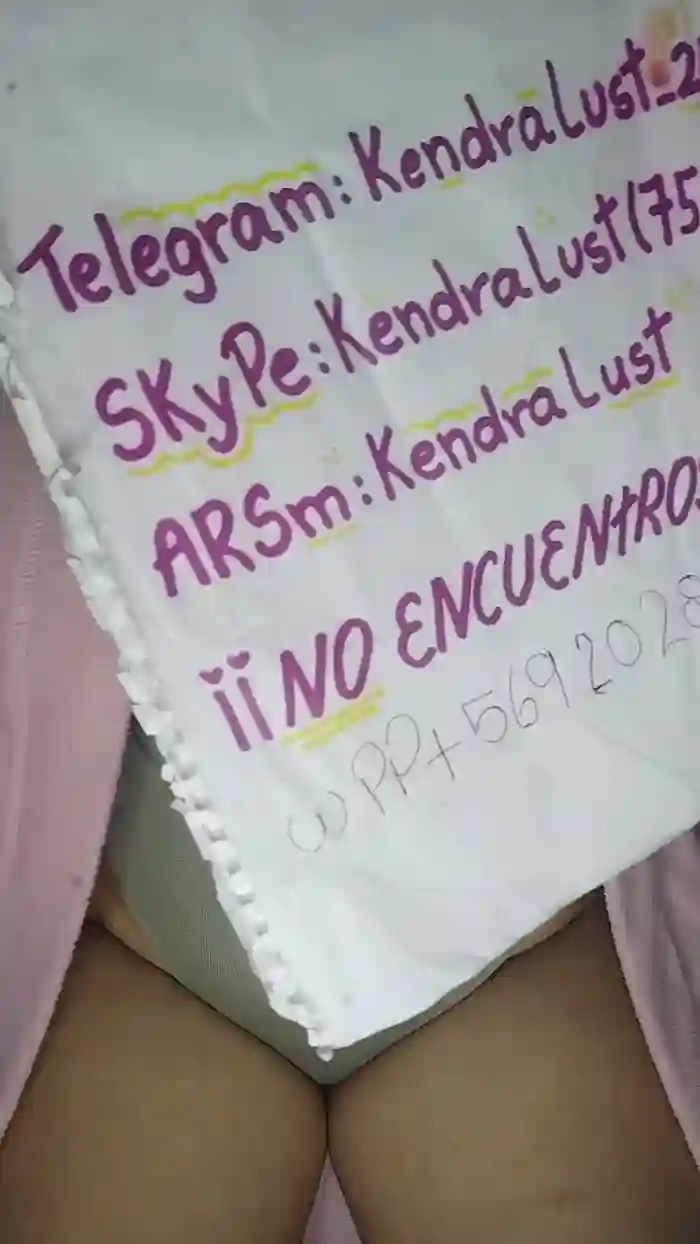 Telegram: KendraLust_2
SKyPe: KendraLust (75
ARSm: KendraLust
¡¡NO ENCUENtROS
WPP+5692028